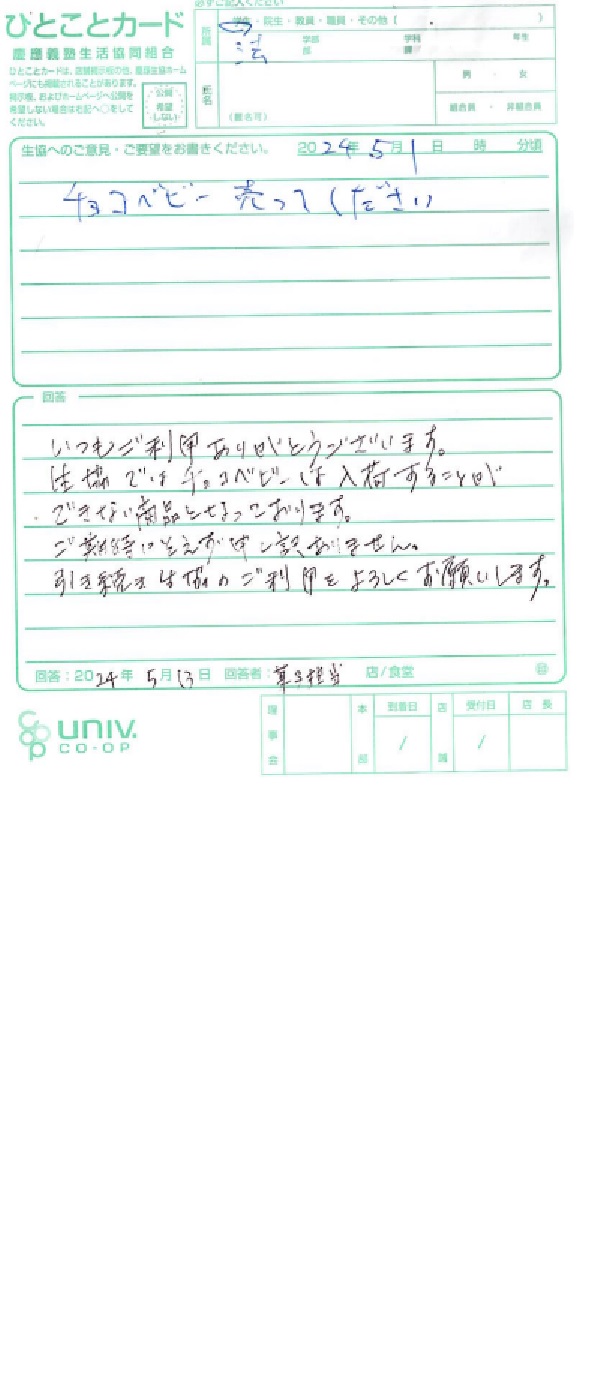 必ずご記入ください
ひとことカード
慶應義塾生活協同組合
ひとことカードは、店舗掲示板の他、慶應生協ホーム
ページにも掲載されることがあります。
掲示板、およびホームページへ公開を
希望しない場合は右記へ○をして
ください。
公開
希望
しない
所属
学生・院生・教員・職員・その他（ ）
法 学部 学科 年生
部 課
氏名
（匿名可）
男 ・ 女
組合員 ・ 非組合員
生協へのご意見・ご要望をお書きください。 2024年 5月 1日 時 分頃
チョコベビー売ってください
回答
いつもご利用ありがとうございます。
生協ではチョコベビーは入荷することが
できない商品となっております。
ご期待にそえず申し訳ありません。
引き続き生協のご利用をよろしくお願いします。
回答：2024年 5月13日 回答者：菓子担当 店/食堂 ㊞
UNIV.
CO-OP
理事会
本部
到着日
/
店舗
受付日
/
店 長